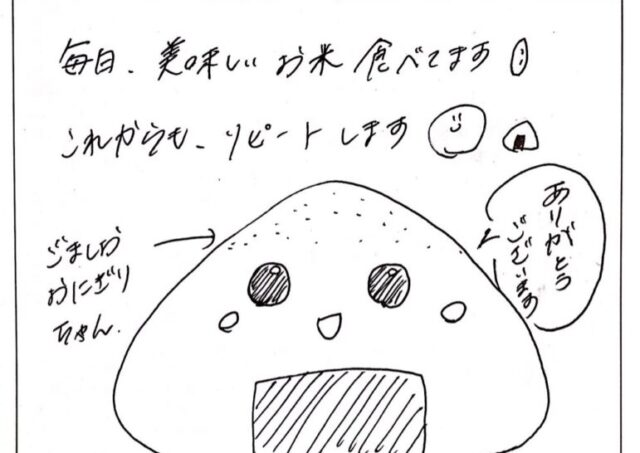 毎日、美味しいお米食べてます
これからも、リピートします
ありがとう
ございます
ごましお
おにぎり
ちゃん.